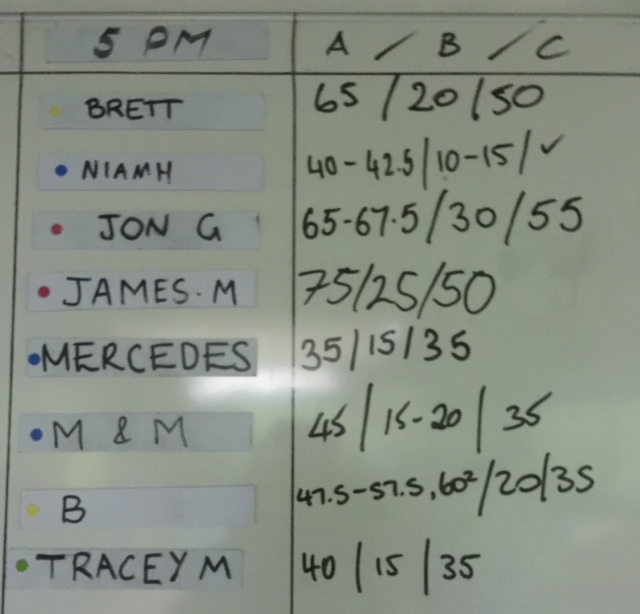 5 PM A / B / C
BRETT 65 / 20 / 50
NIAMH 40 - 42.5 / 10 - 15 / ✓
JON G 65-67.5 / 30 / 55
JAMES. M 75/25/50
MERCEDES 35 / 15 / 35
M & M 45 / 15-20 / 35
B 47.5-57.5, 60² / 20 / 35
TRACEY M 40 / 15 / 35